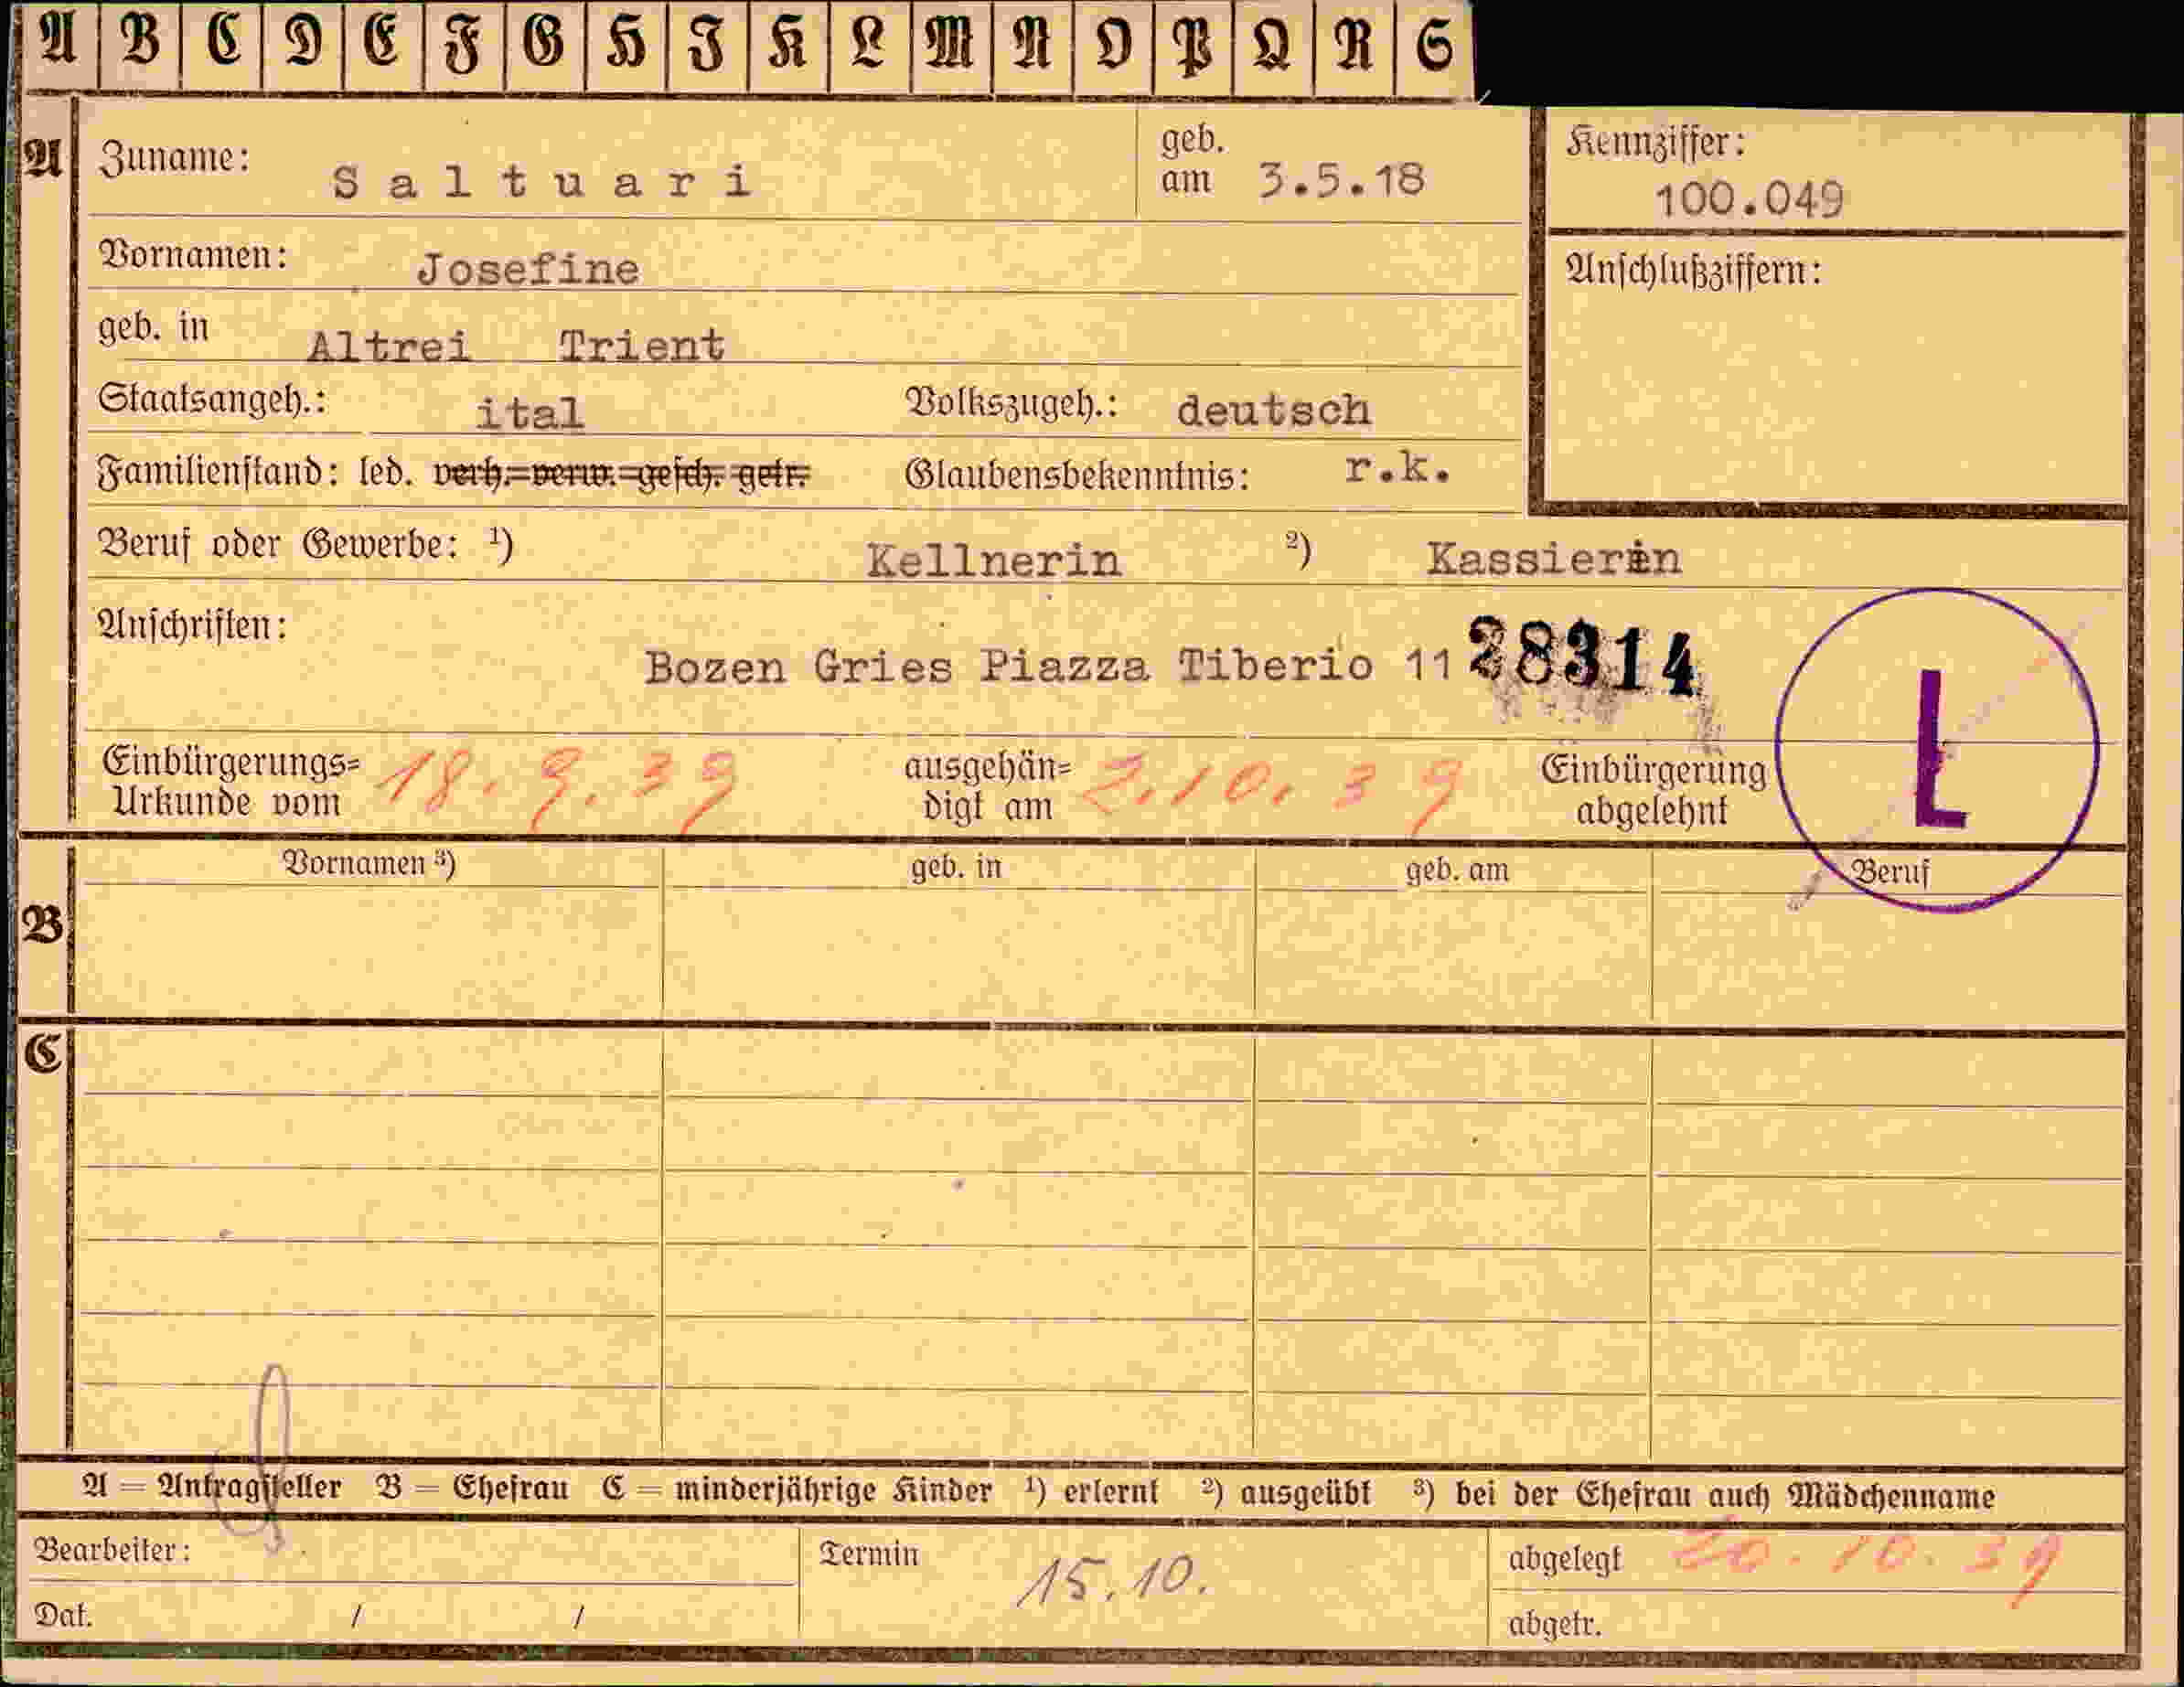 A B C D E F G H I K L M N O P Q R S
A Zuname: Saltuari geb. am 3.5.18 Kennziffer: 100.049
Vornamen: Josefine Anschlußziffern:
geb. in Altrei Trient
Staatsangeh.: ital Volkszugeh.: deutsch
Familienstand: led. verh.=verw.=gesch. getr. Glaubensbekenntnis: r.k.
Beruf oder Gewerbe: ¹) Kellnerin ²) Kassierin
Anschriften:
Bozen Gries Piazza Tiberio 11 28314
L
Einbürgerungs= Urkunde vom 18.9.39 ausgehän= digt am 2.10.39 Einbürgerung abgelehnt
Vornamen ³) geb. in geb. am Beruf
B
C
A = Antragsteller B = Ehefrau C = minderjährige Kinder ¹) erlernt ²) ausgeübt ³) bei der Ehefrau auch Mädchenname
Bearbeiter: Termin 15.10. abgelegt 20.10.39
Dat. / / abgetr.